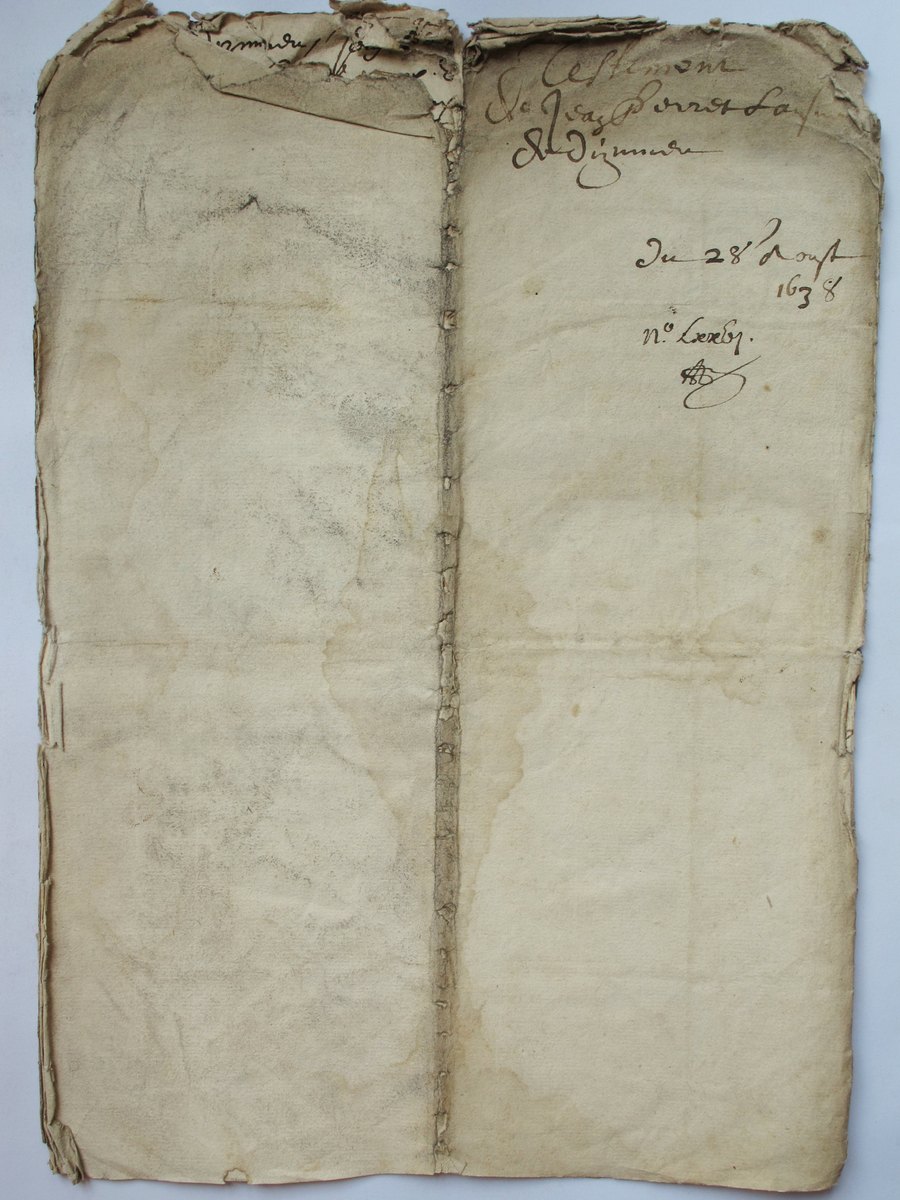 Testament
de Jean Perret
de Dizimieu
Du 28e Aoust
1638
n.o Lxxbj.